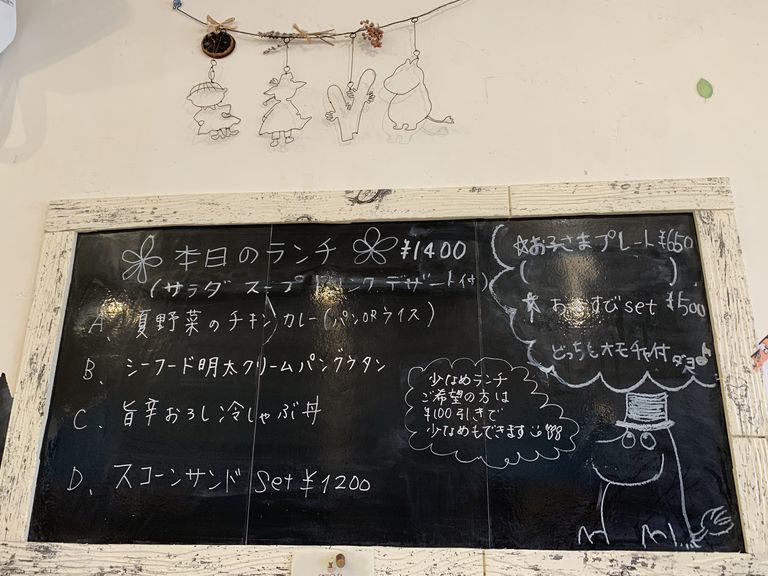 本日のランチ ¥1400
(サラダ スープ ドリンク デザート付)
A、夏野菜のチキンカレー(パンORライス)
B、シーフード明太クリームパングラタン
C、旨辛おろし冷しゃぶ丼
D、スコーンサンド set ¥1200
☆お子さまプレート ¥650
( )
☆ おむすび set ¥500
どっちもオモチャ付ダヨ♪
少なめランチ
ご希望の方は
¥100引きで
少なめもできます